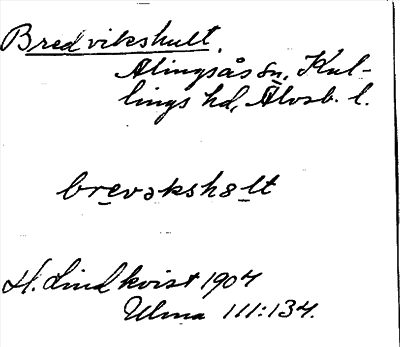 Bredvikshult.
Alingsås sn, Kul-
lings hd, Älvsb. l.
brevəkshȣlt
H. Lindkvist 1904
Ulma 111:134.